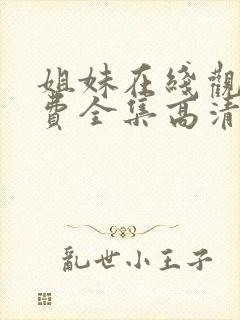 姐妹在綫觀
費全集高清
亂世小王子